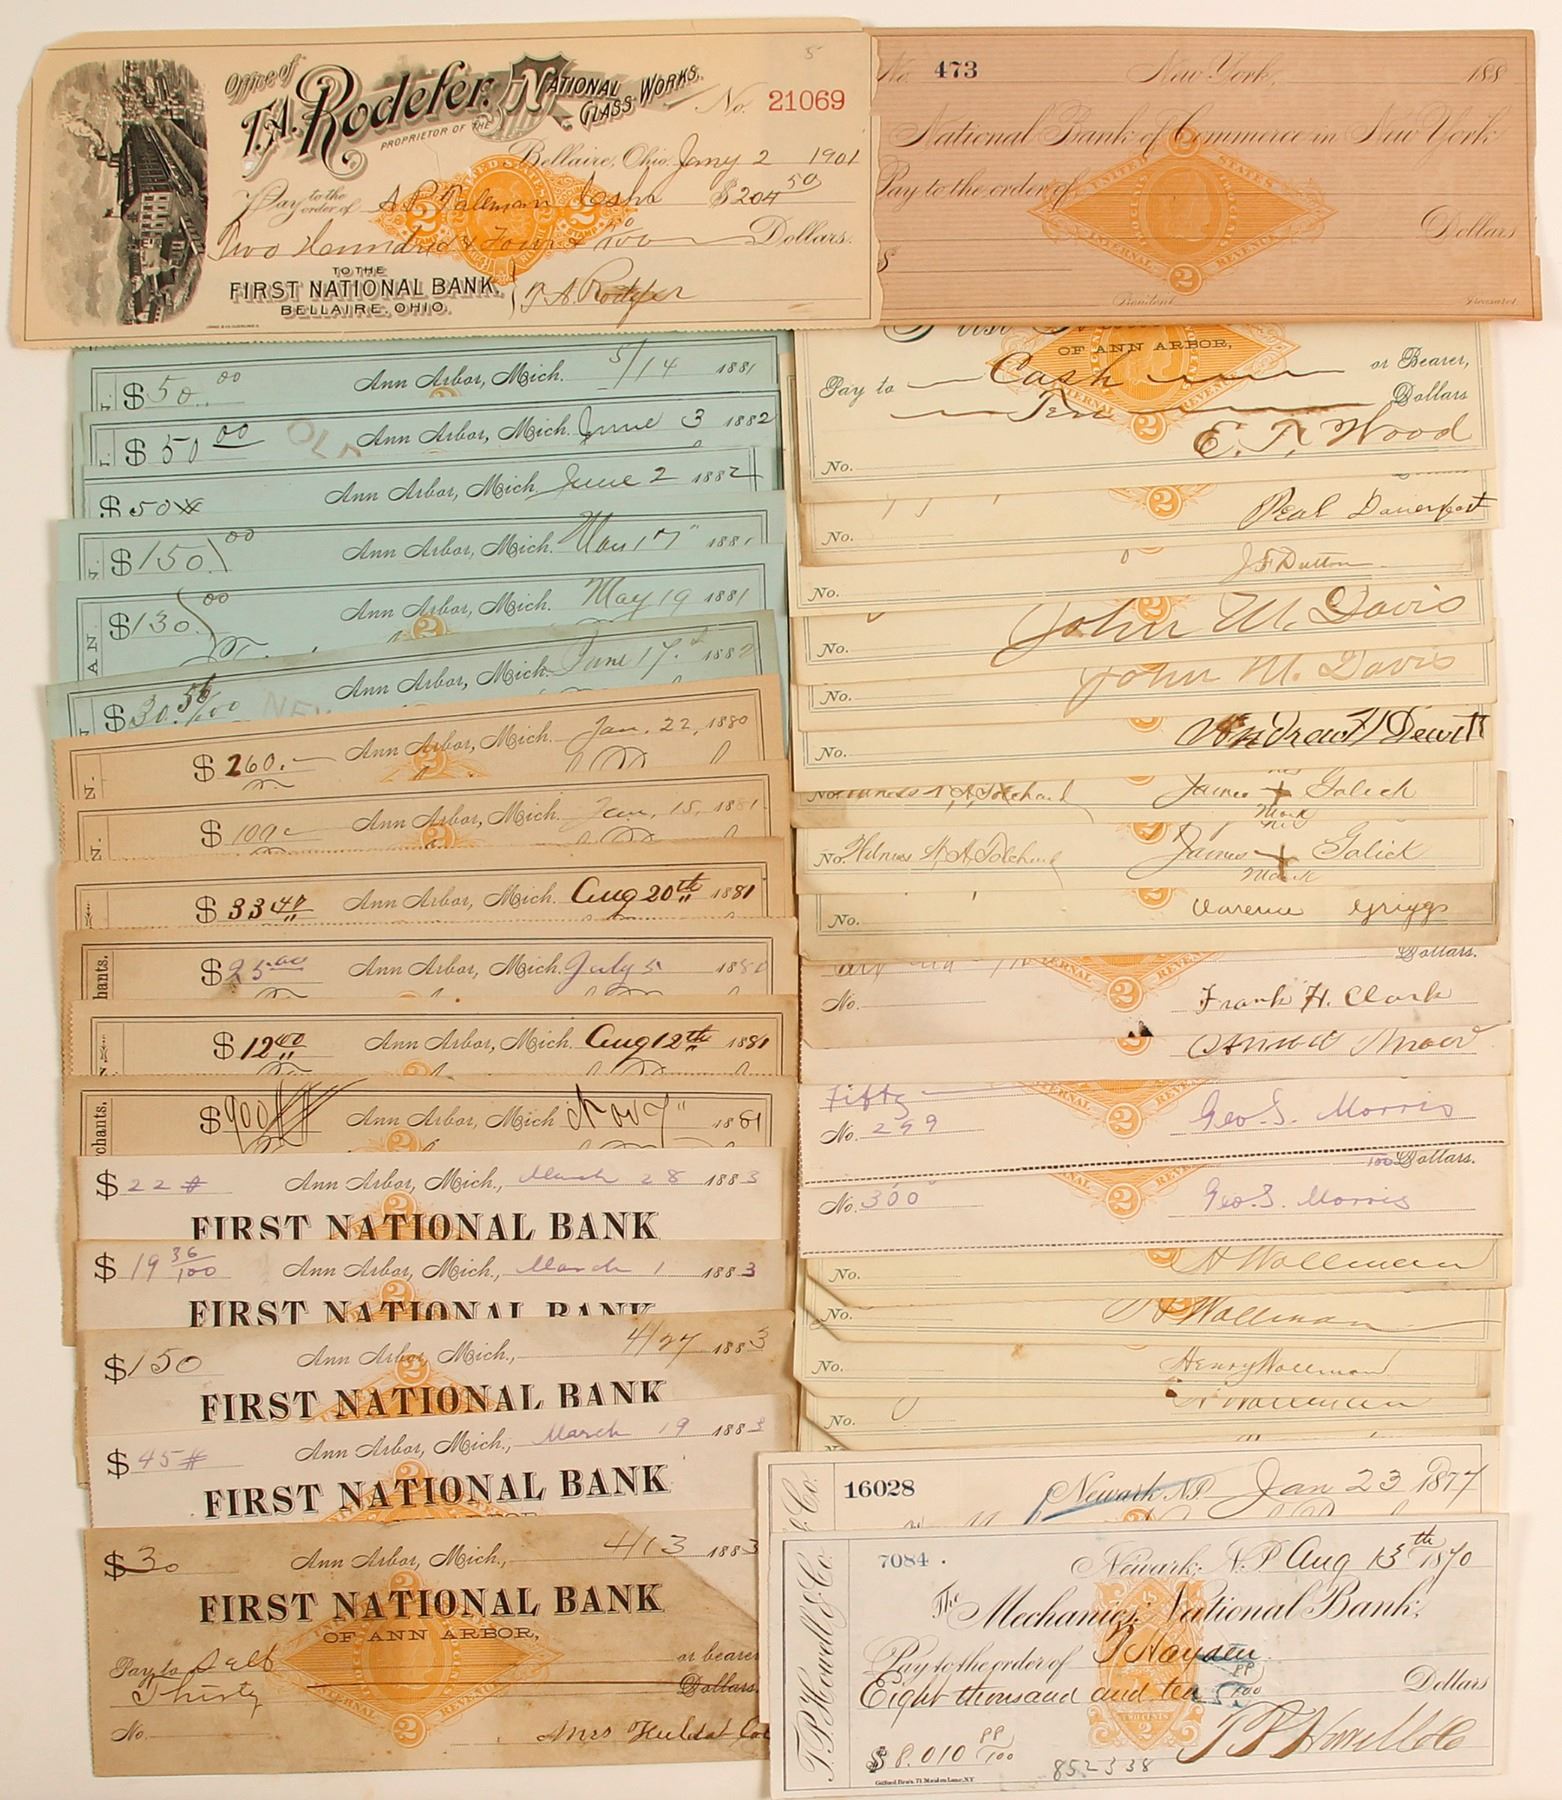 Office of
T.A. Rodefer.
PROPRIETOR OF THE
NATIONAL
GLASS WORKS.
5
No. 21069
Bellaire, Ohio, Jany 2 1901
Pay to the
order of
Cash $204 50
Two Hundred & Four & 50/100 Dollars.
TO THE
FIRST NATIONAL BANK.
BELLAIRE, OHIO.
T. A. Rodefer
No. 473 New York, 188
National Bank of Commerce in New York
Pay to the order of
UNITED STATES
INTERNAL REVENUE
2
Dollars
$
President Treasurer
$ 50.00 Ann Arbor, Mich. 5/14 1881
$ 50 00 Ann Arbor, Mich. June 3 1882
$ 50 Ann Arbor, Mich. June 2 1882
$ 150.00 Ann Arbor, Mich. 1881
$ 130.00 Ann Arbor, Mich. May 19 1881
$ 30. 56/100 Ann Arbor, Mich. June 17 1882
$ 260.— Ann Arbor, Mich. Jan. 22, 1880
$ 100 Ann Arbor, Mich. Jan. 15, 1881
$ 33 47 Ann Arbor, Mich. Aug 20th 1881
$ 25 00 Ann Arbor, Mich. July 5 188
hants.
$ 12 00 Ann Arbor, Mich. Aug 12th 1881
$ 900 Ann Arbor, Mich Nov 7 1881
chants.
$ 22 Ann Arbor, Mich., March 28 1883
FIRST NATIONAL BANK
$ 19 36/100 Ann Arbor, Mich., March 1 1883
FIRST NATIONAL BANK
$ 150 Ann Arbor, Mich., 4/27 1883
FIRST NATIONAL BANK
$ 45 Ann Arbor, Mich., March 19 1883
FIRST NATIONAL BANK
$ 30 Ann Arbor, Mich., 4/13 1883
FIRST NATIONAL BANK
OF ANN ARBOR,
Pay to Self or bearer
Thirty Dollars.
INTERNAL REVENUE
2
No.
Mrs
OF ANN ARBOR,
Pay to Cash or Bearer,
Ten Dollars
E. T. Wood
No.
No. Davenport
No. J F Dutton
No. John M. Davis
No. John M. Davis
No. Andrew J Dewitt
James + Golick
Mark
No. Witness James + Golick
Mark
No. Clarence Griggs
Dollars.
No. Frank H. Clark
Fifty
No. 299 Geo. S. Morris
Dollars.
No. 300 Geo. S. Morris
No. H Wollman
No. H Wollman
No. Henry Wollman
No. H Wollman
16028 Newark N.J. Jan 23 187
& Co.
7084 . Newark, N.J. Aug 13th 1870
The Mechanics National Bank,
Pay to the order of J Hayden
Eight thousand and ten Dollars
$ 8.010 00/100
852338
T P Howell & Co
T.P. Howell & Co.
Gilford Bros. 71 Maiden Lane, N.Y.